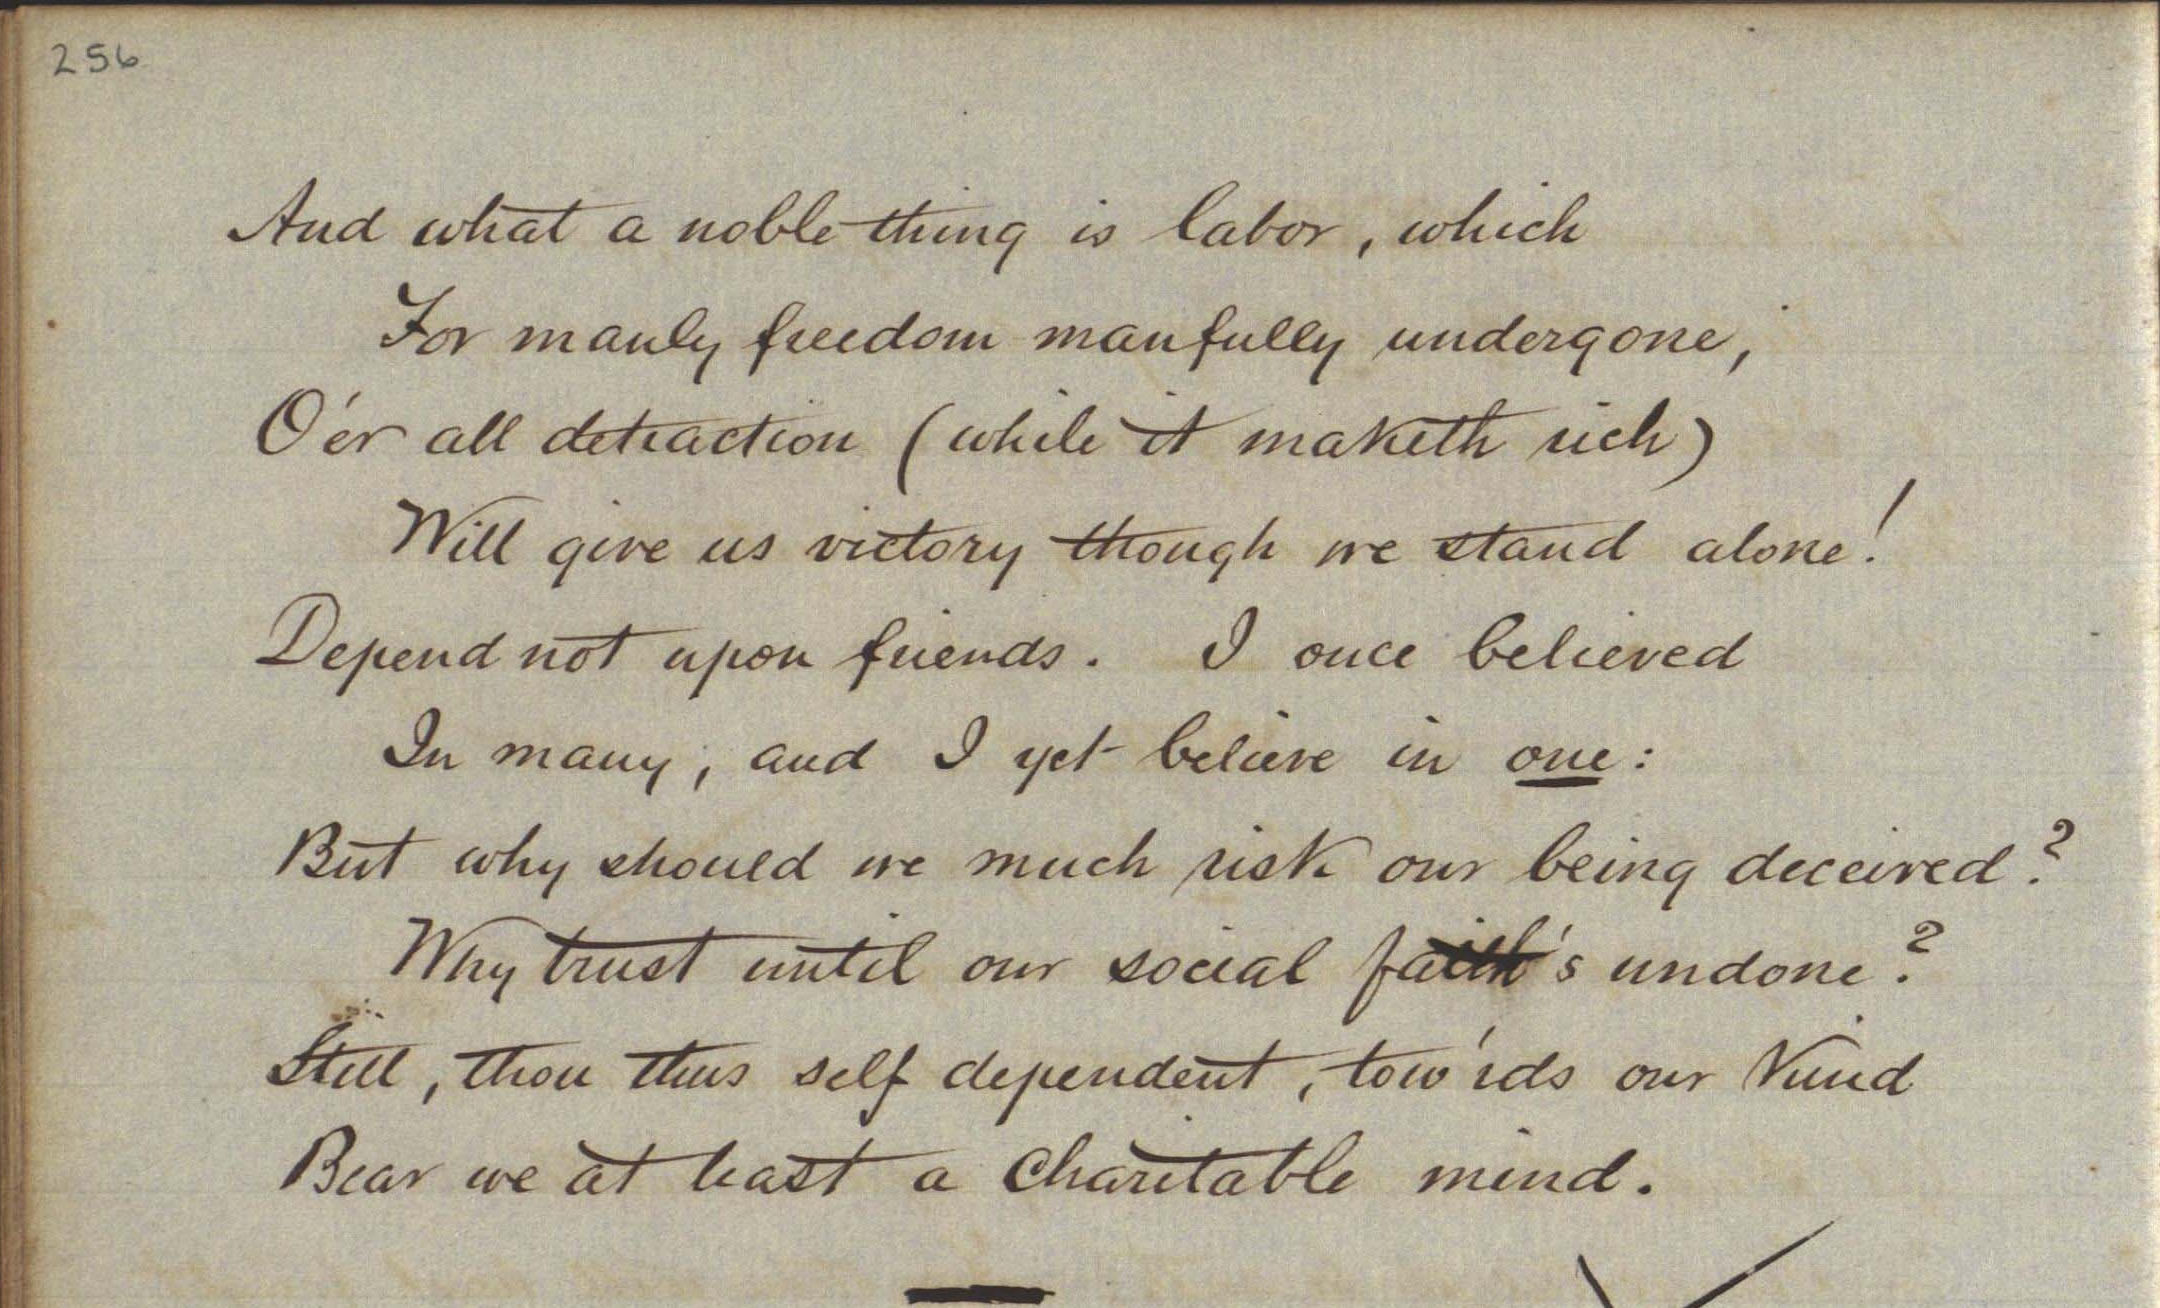 256
And what a noble thing is labor, which
For manly freedom manfully undergone,
O'er all detraction (while it maketh rich)
Will give us victory though we stand alone!
Depend not upon friends. I once believed
In many, and I yet believe in one:
But why should we much risk our being deceived?
Why trust until our social faith's undone?
Still, thou thus self dependent, tow'rds our kind
Bear we at least a charitable mind.